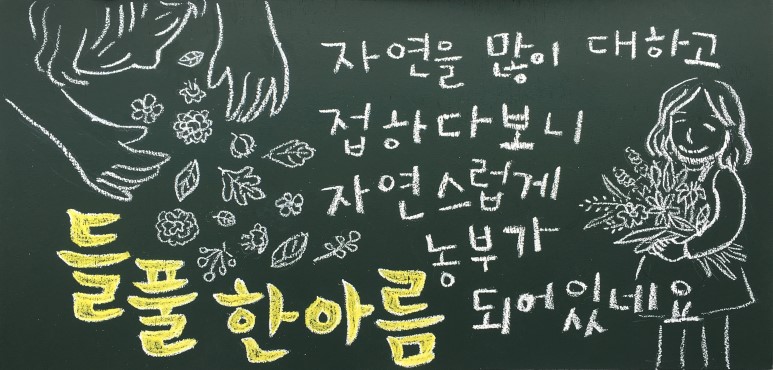 자연을 많이 대하고
접하다보니
자연스럽게
농부가
되어있네요
들풀한아름